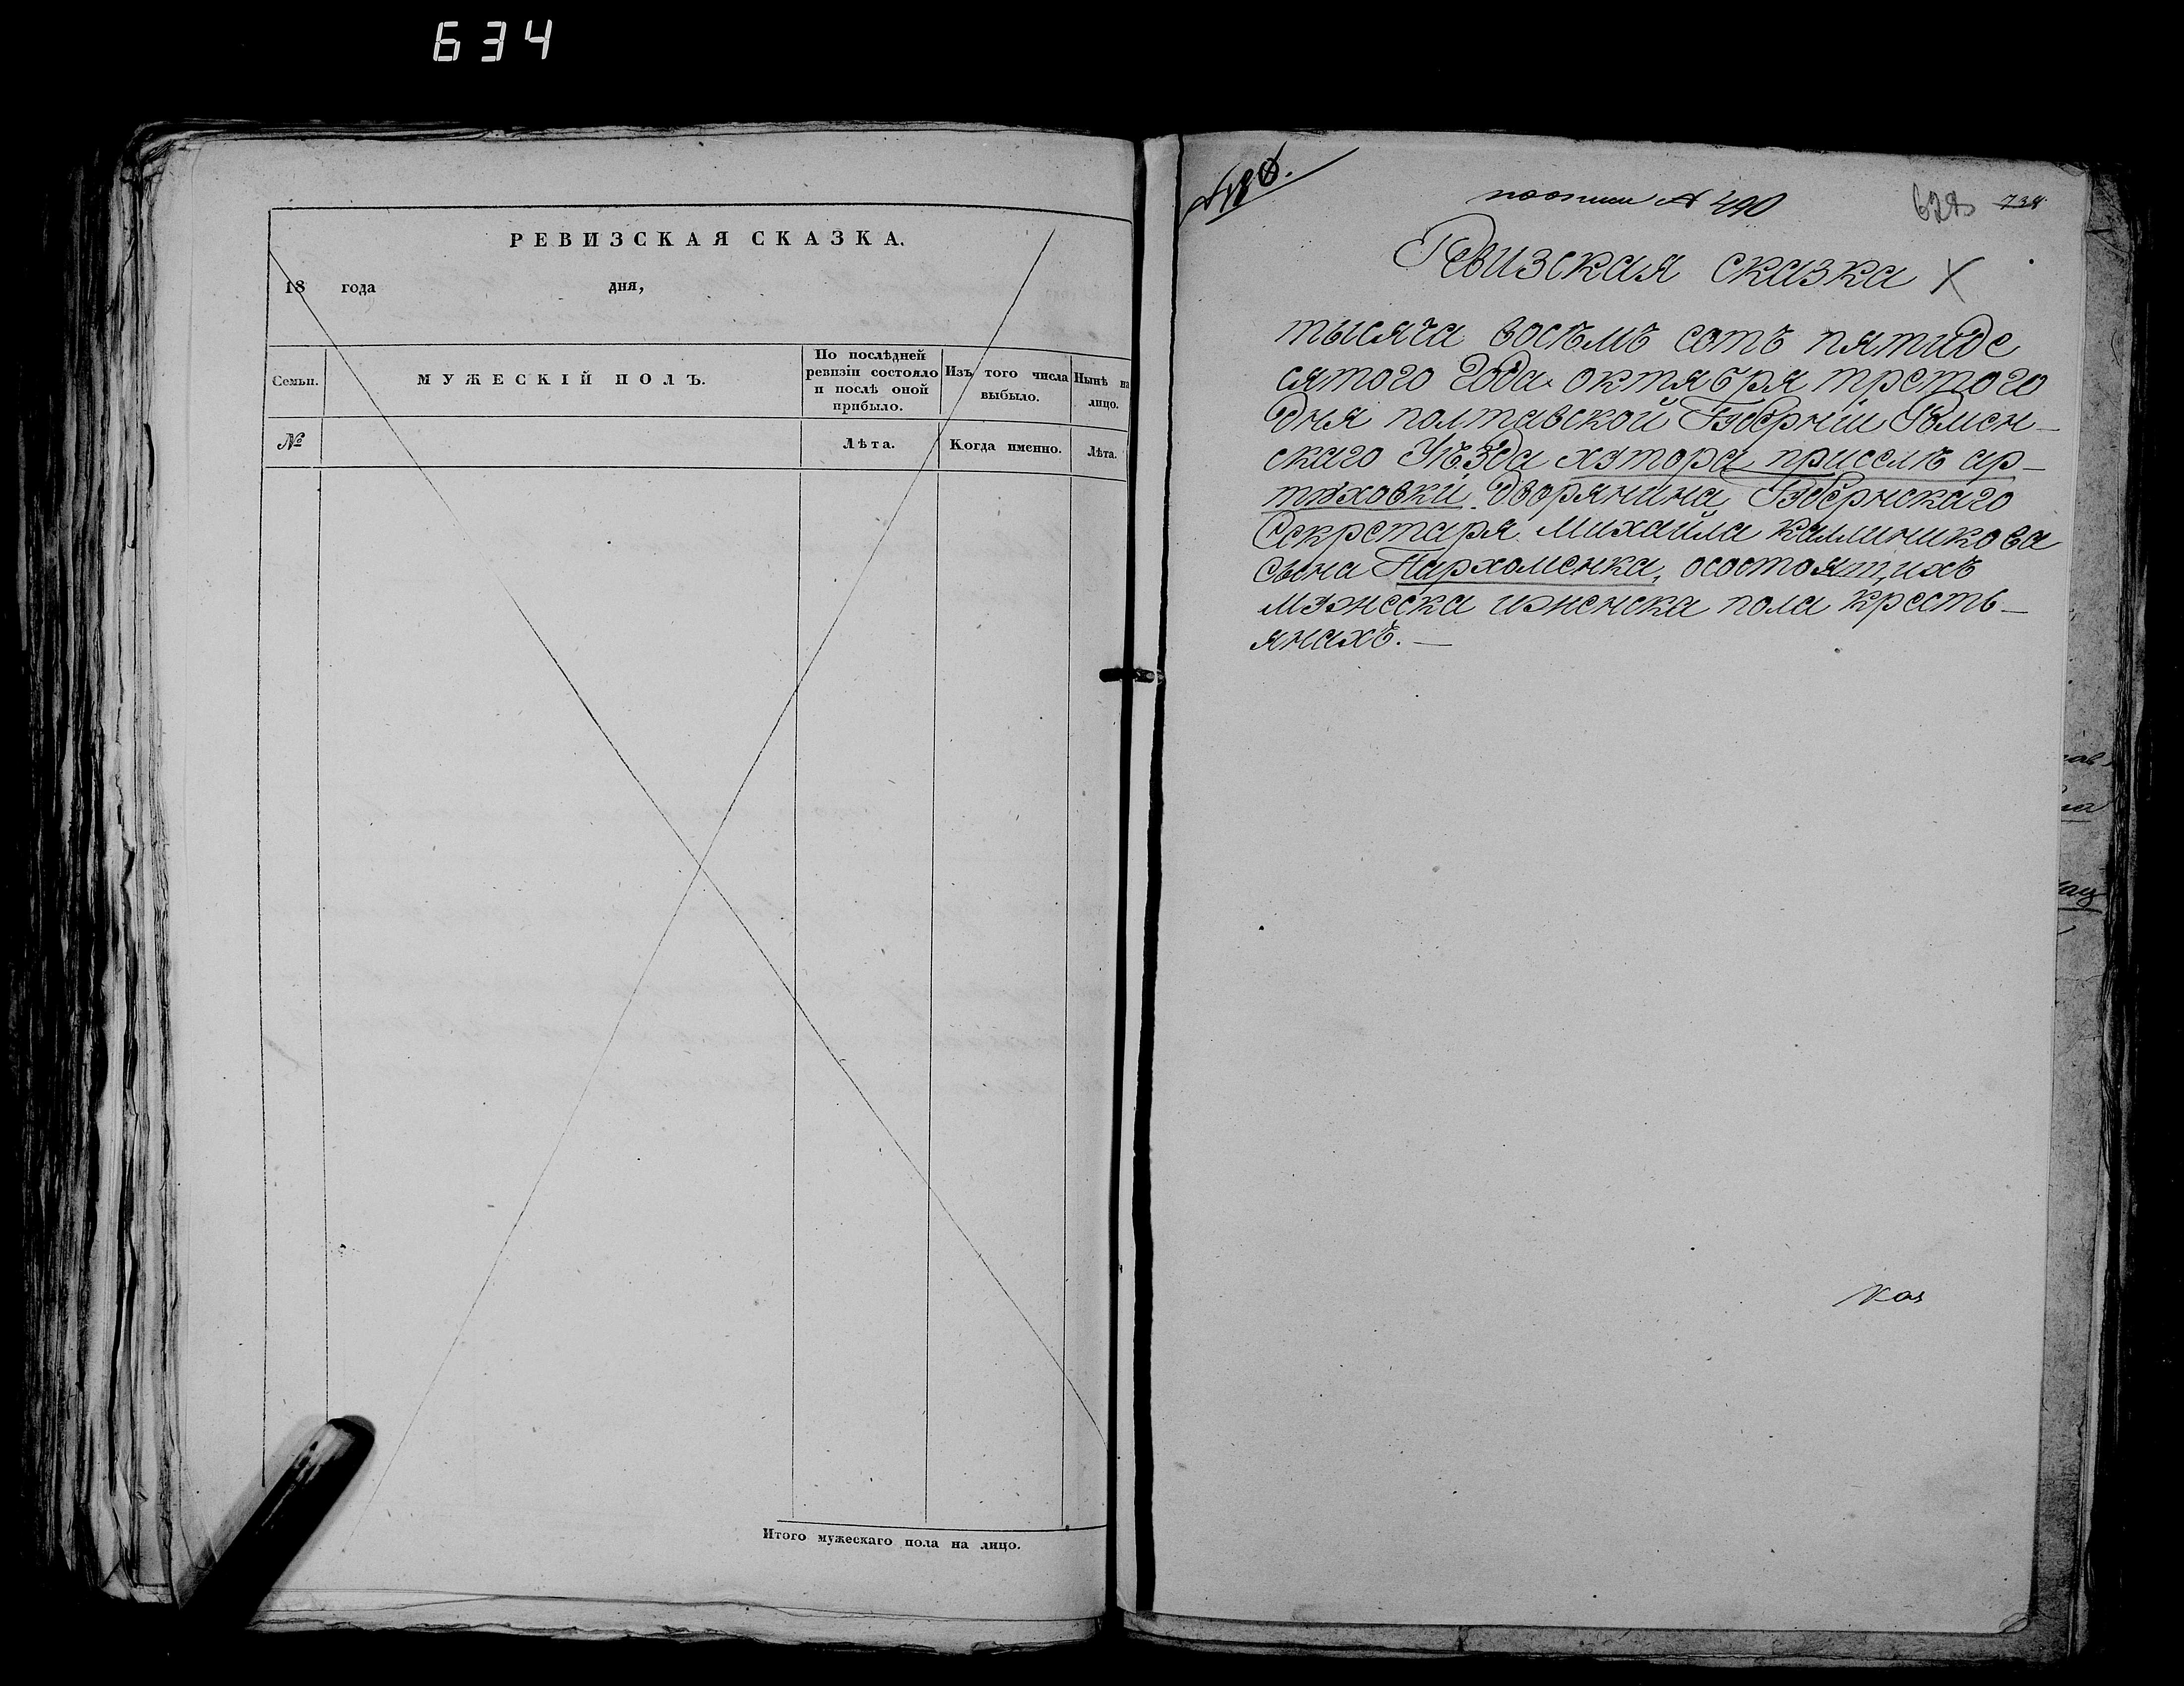 634
РЕВИЗСКАЯ СКАЗКА.
18 года дня,
Семьи.
МУЖЕСКІЙ ПОЛЪ.
По послѣдней
ревизіи состояло
и послѣ оной
прибыло.
Изъ того числа
выбыло.
Нынѣ на
лицо.
№
Лѣта.
Когда именно.
Лѣта.
Итого мужескаго пола на лицо.
№ 490
628 734
Ревизская сказка
тысяча восѣмъ сотъ пятиде
сятого Года октября третого
дня полтавской Губерніи Ромен-
скаго Уѣзда хутора приселѣ ар-
тюховки Дворянина Губернскаго
Секретаря Михайла Каллиникова
сына Пархоменка, осостоящихъ
мужеска иженска пола кресть-
янахъ.—